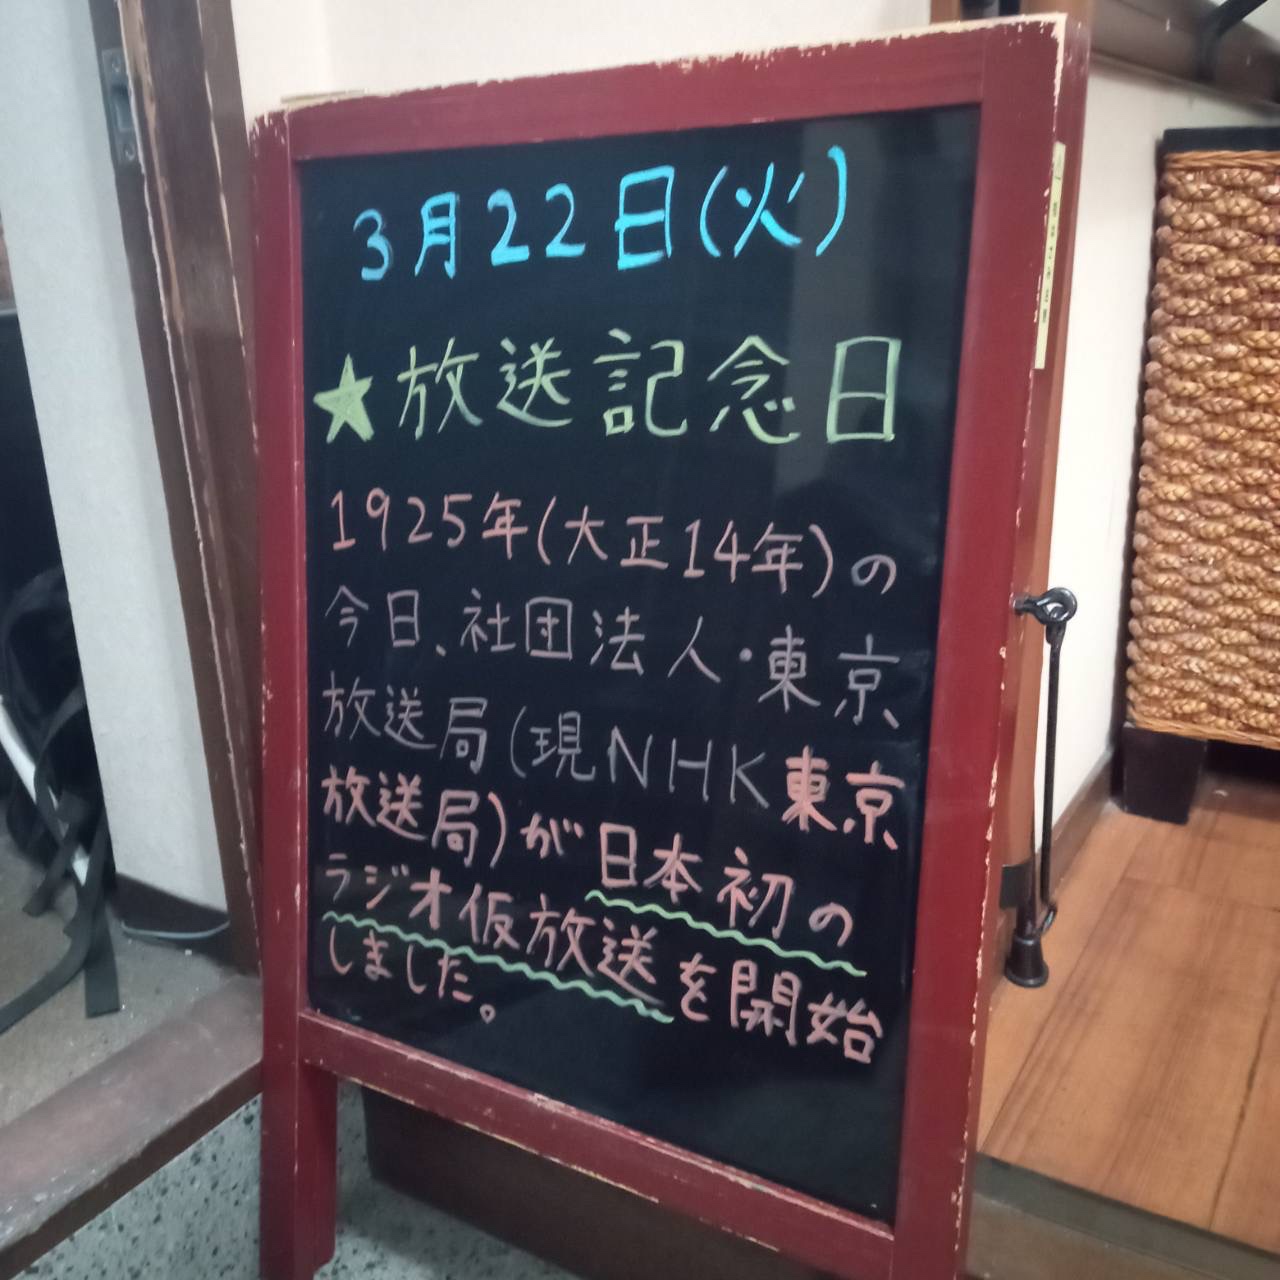 3月22日(火)
★放送記念日
1925年(大正14年)の
今日、社団法人・東京
放送局(現NHK東京
放送局)が日本初の
ラジオ仮放送を開始
しました。